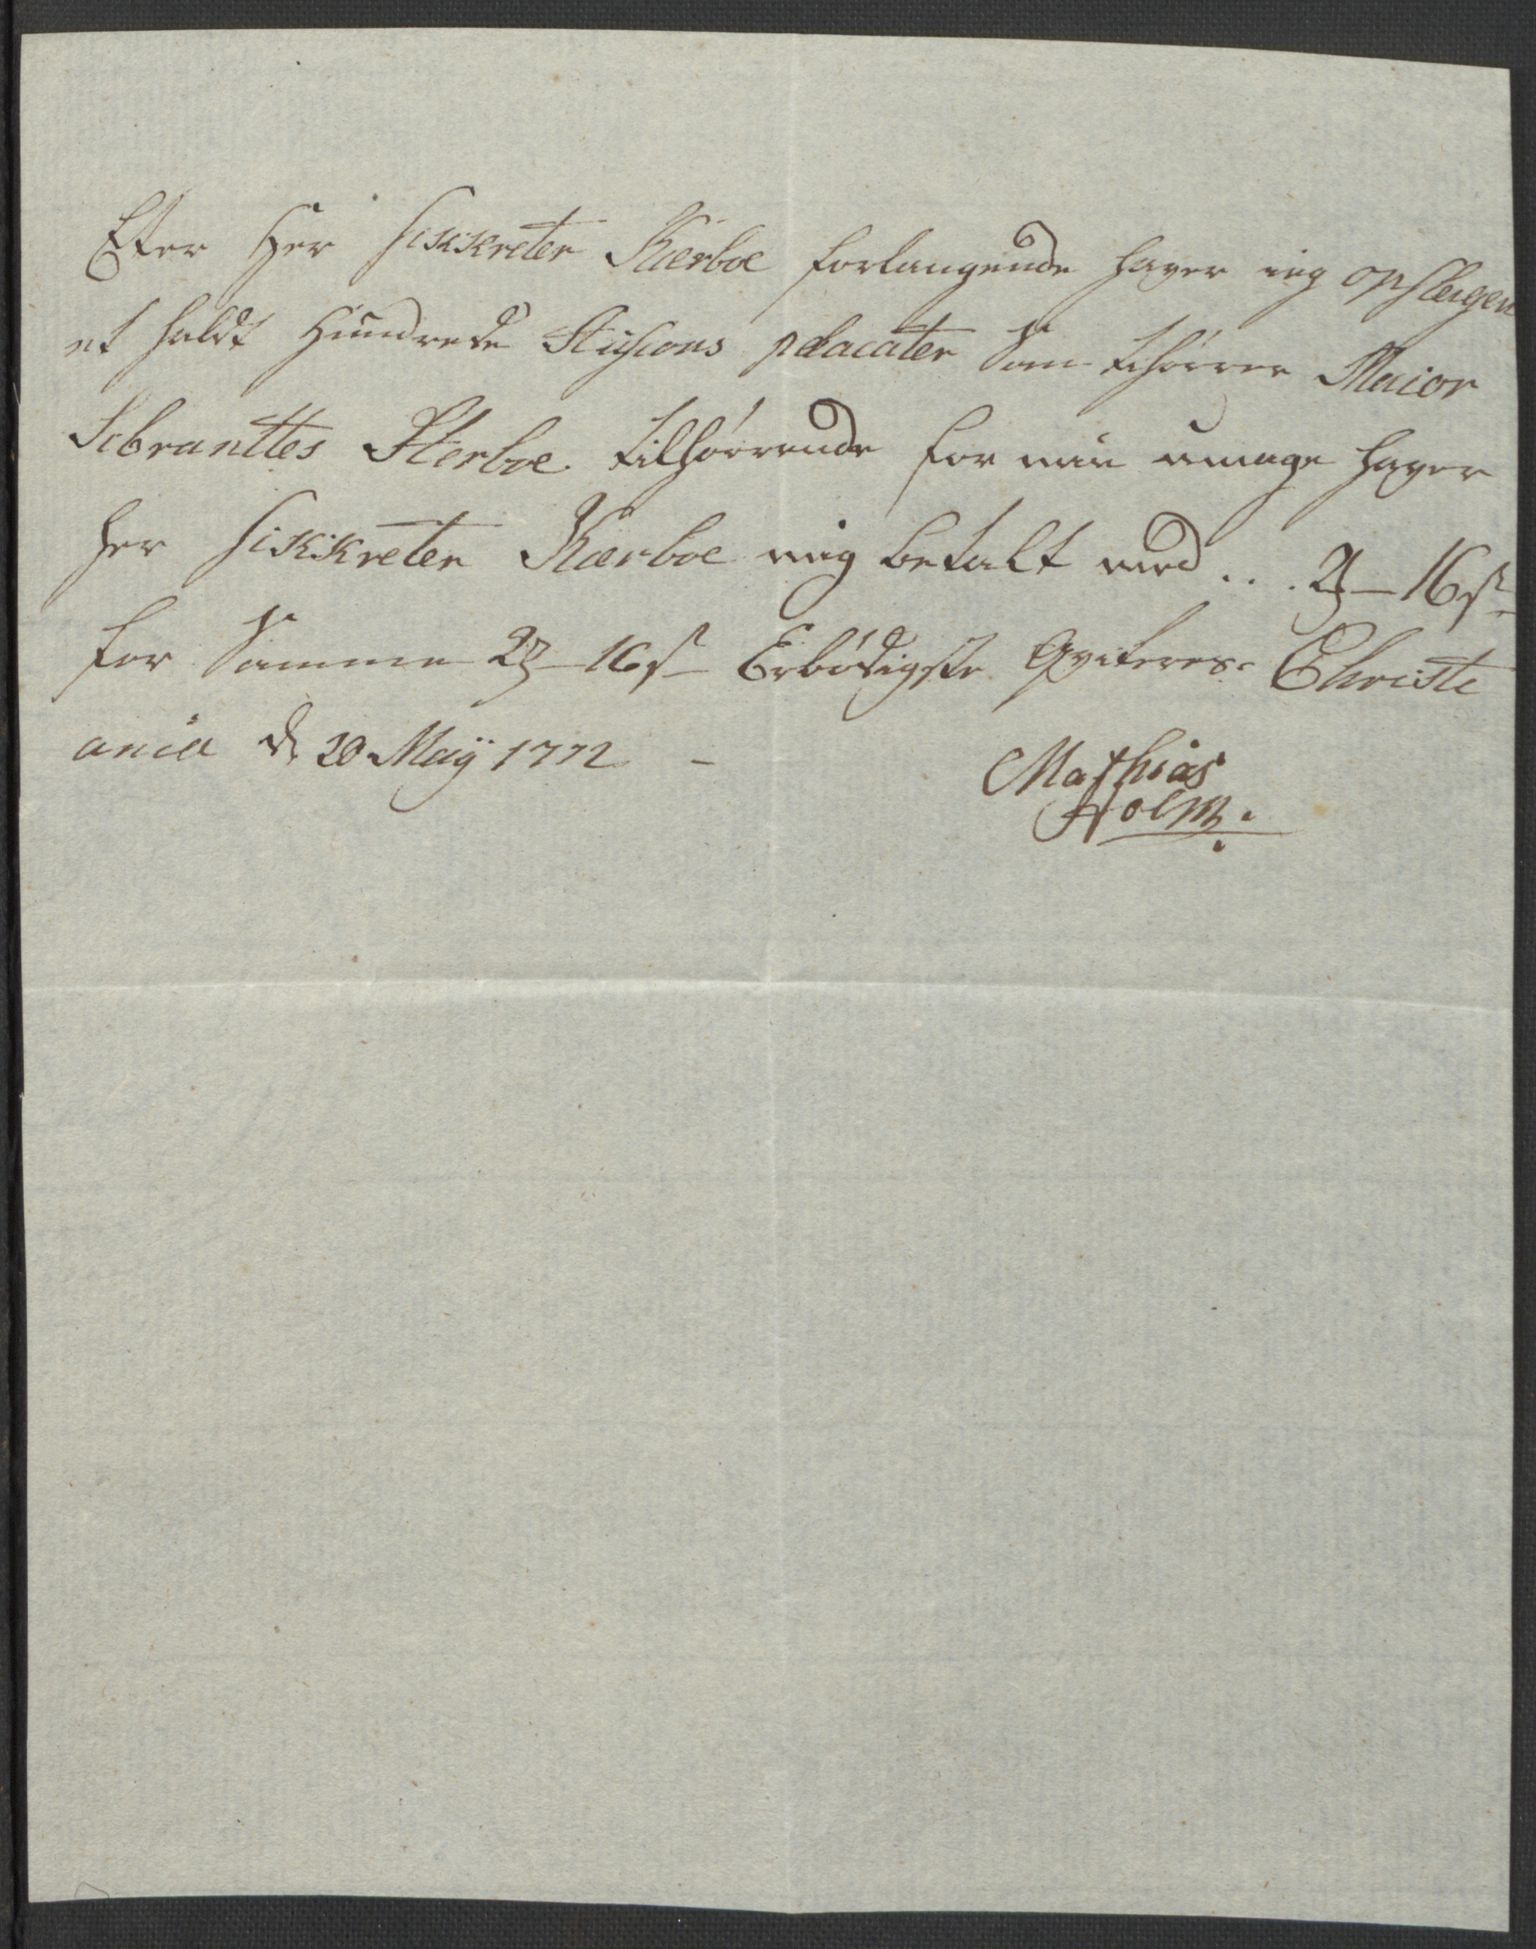 Efter Her Sikkreter Kierboe forlangende haver ieg opslagen
et haldt Hundrede Auscions placater Som tihörrer Maior
Sebranttes Sterboe tilhörrende for min umage haver
her Sikkreter Kierboe mig betalt med . . . 2 – 16 s
for Samme 2 – 16 s Erbödigste Qviteres. Christi
ania d 20 Maÿ 1772 –
Mathias
Holm.